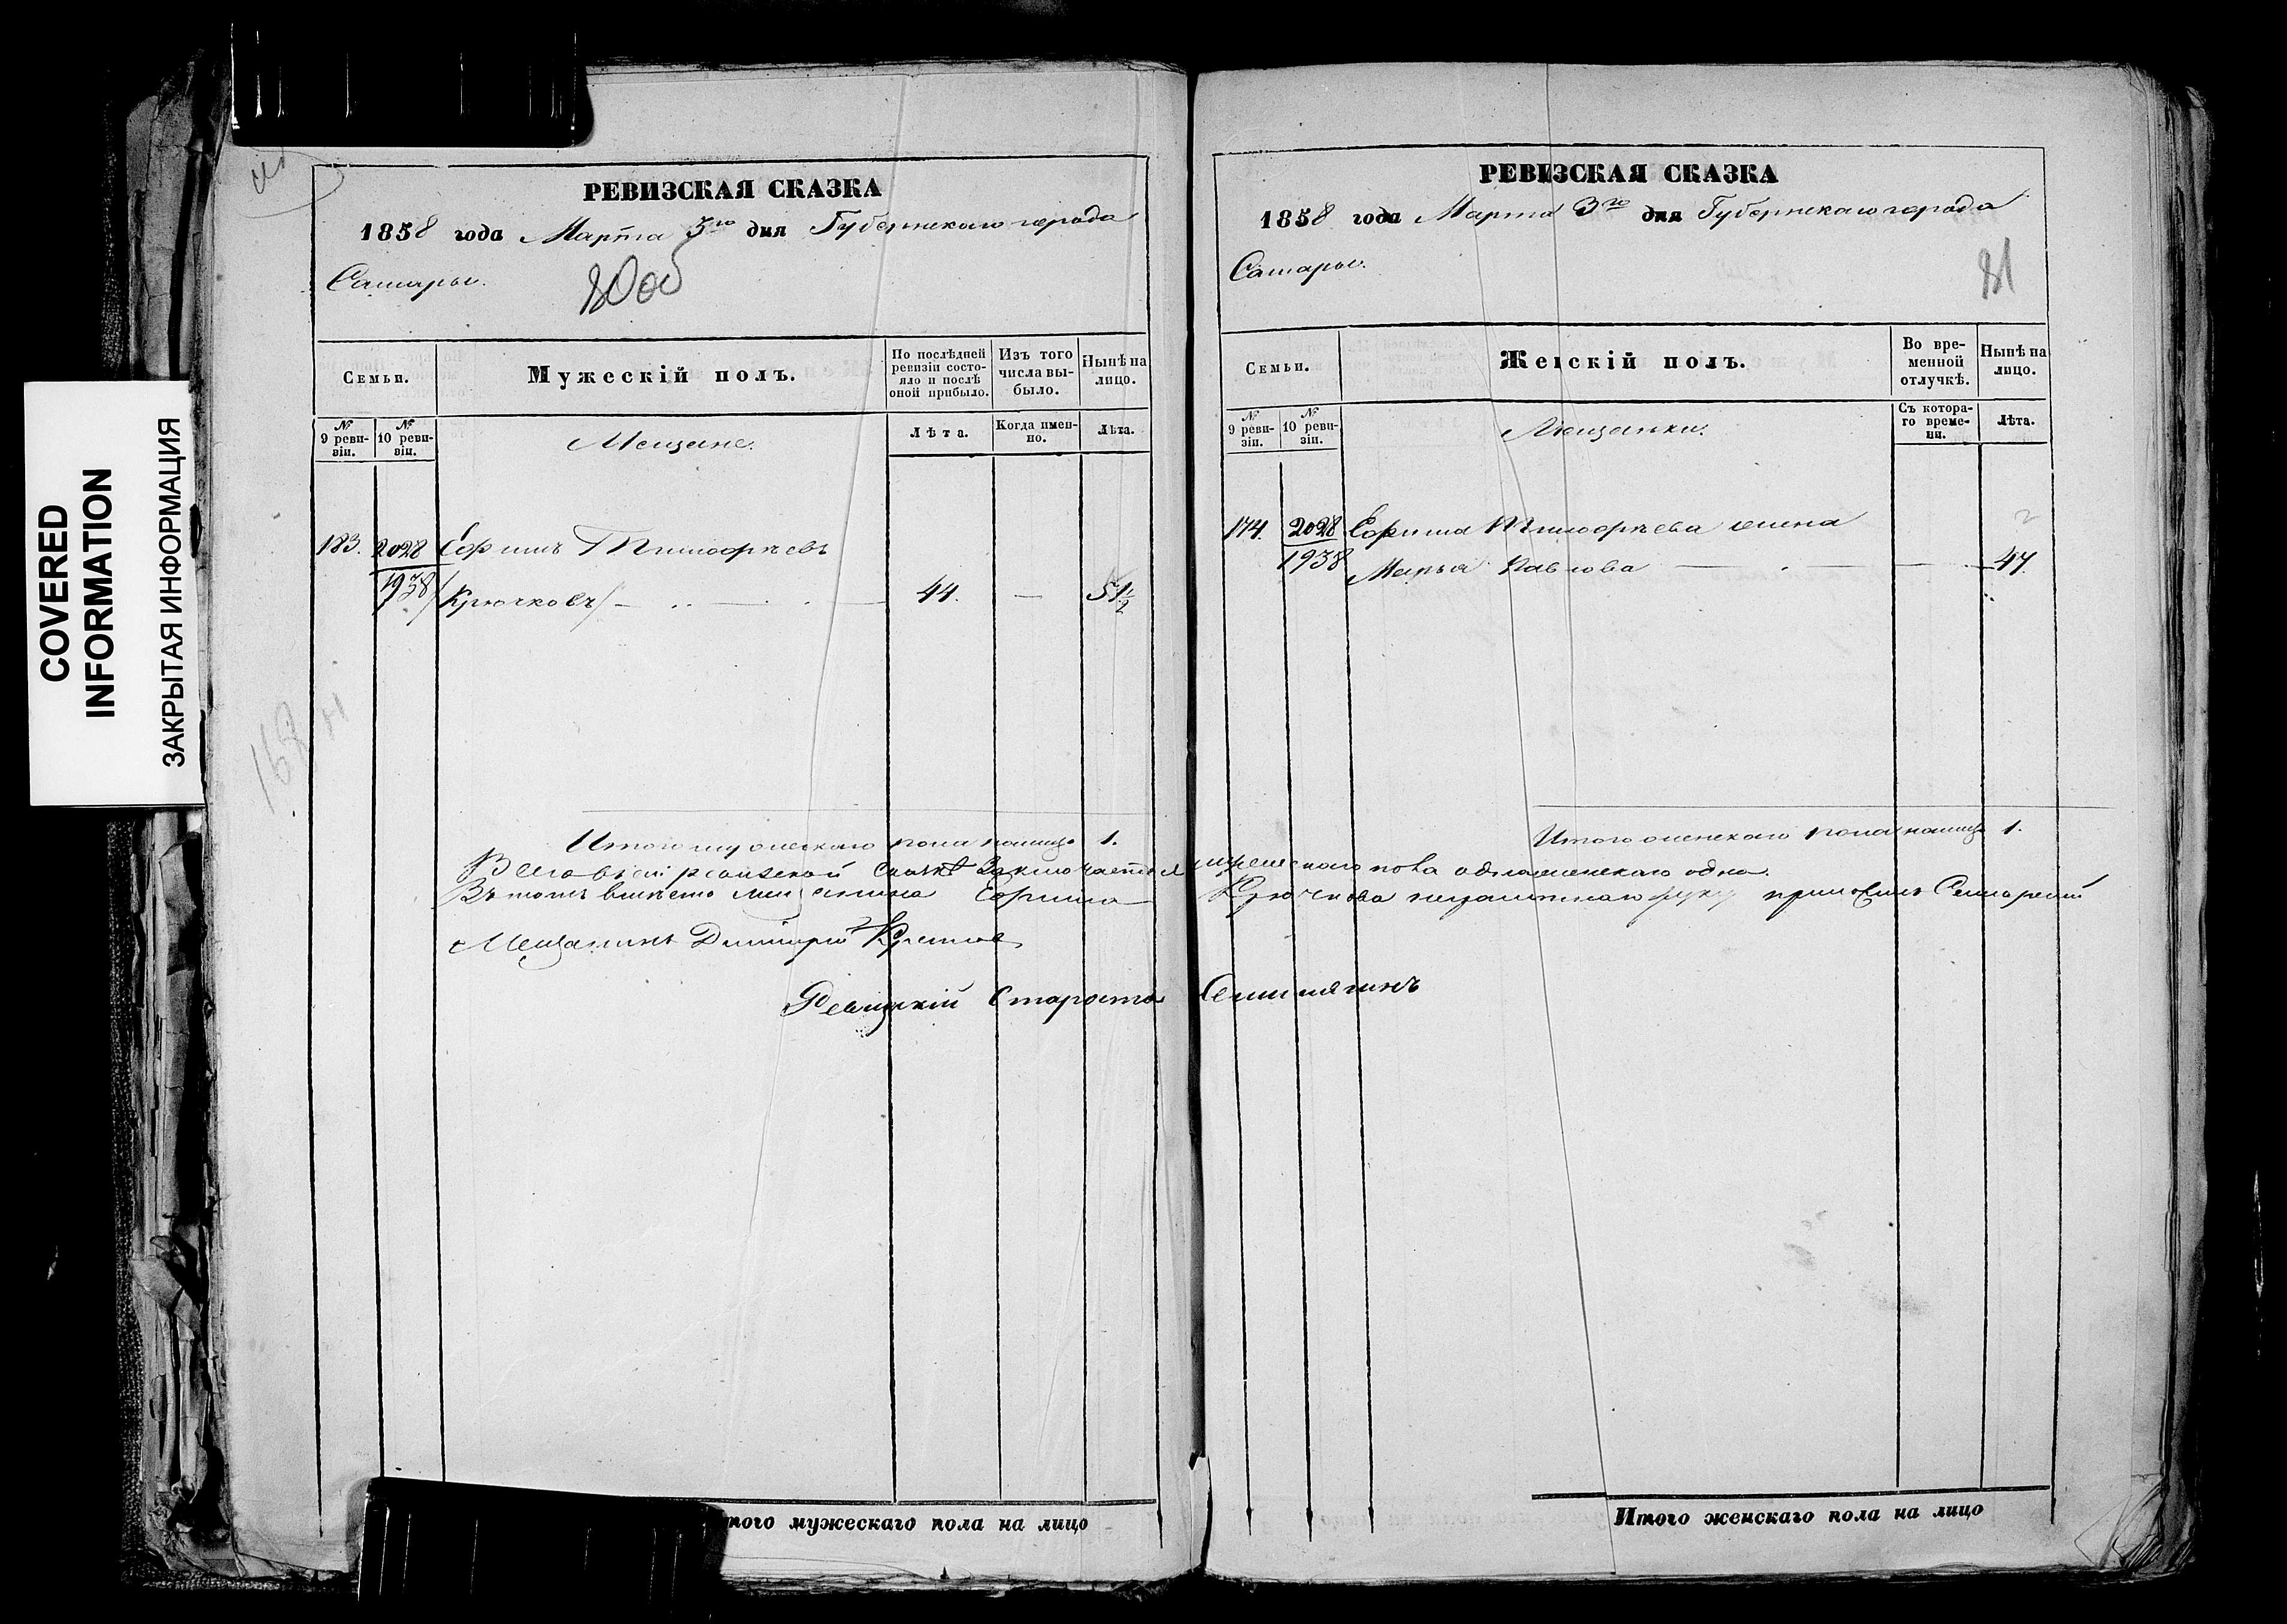 COVERED
INFORMATION
ЗАКРЫТАЯ ИНФОРМАЦИЯ
РЕВИЗСКАЯ СКАЗКА
1858 года Марта 3го дня Губернскаго города
Самары.
80об
Семьи.
Мужескій полъ.
По послѣдней
ревизіи состо-
яло и послѣ
оной прибыло.
Изъ того
числа вы-
было.
Нынѣ на
лицо.
№
9 реви-
зіи.
№
10 реви-
зіи.
Мещане.
Лѣта.
Когда имен-
но.
Лѣта.
183. 2028 Ефимъ Тимофѣевъ
1938 /Крючковъ/ — 44. — 51½
168
Итого мужескаго пола налицо 1.
мужескаго пола одна женскаго одна.
Въ томъ вмѣсто мещанина Ефима Крючкова неграмотнаго руку приложилъ Самарскій
Мещанинъ Дмитрій
Староста
того мужескаго пола на лицо
РЕВИЗСКАЯ СКАЗКА
1858 года Марта 3го дня Губернскаго города
Самары.
81
Семьи.
Женскій полъ.
Во вре-
менной
отлучкѣ.
Нынѣ на
лицо.
№
9 реви-
зіи.
№
10 реви-
зіи.
Мещанки.
Съ котора-
го време-
ни.
Лѣта.
174. 2028 Ефима Тимофѣева жена
1938 Марья Павлова — — 47.
Итого женскаго пола налицо 1.
Итого женскаго пола на лицо